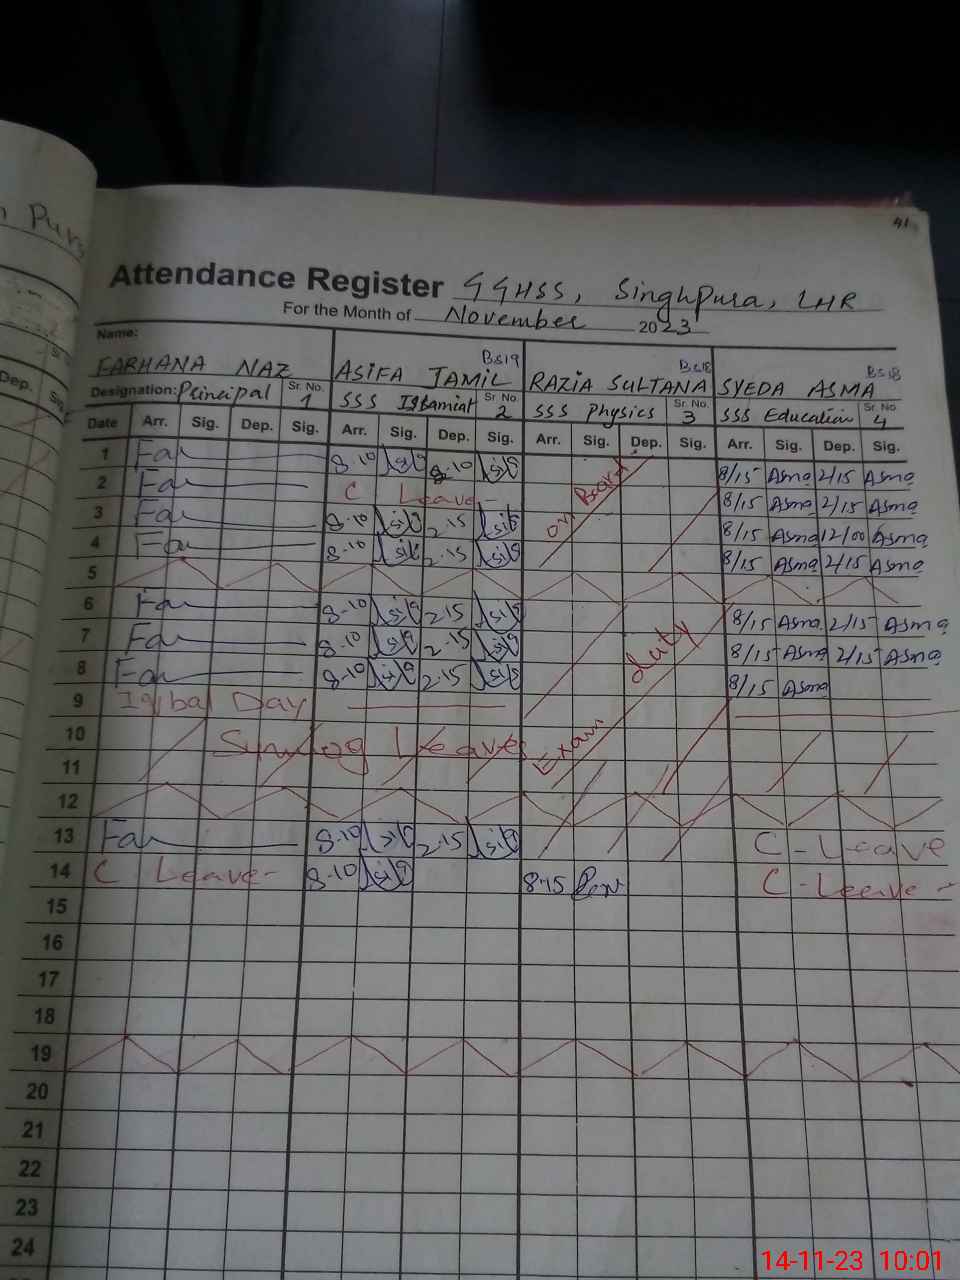 Purs
41
Attendance Register GGHSS, Singhpura, LHR
For the Month of November 2023
Name:
FARHANA NAZ ASIFA JAMIL BS19 RAZIA SULTANA BS18 SYEDA ASMA BS18
Designation: Principal Sr. No. 1 SSS Islamiat Sr. No. 2 SSS Physics Sr. No. 3 SSS Education Sr. No. 4
Date Arr. Sig. Dep. Sig. Arr. Sig. Dep. Sig. Arr. Sig. Dep. Sig. Arr. Sig. Dep. Sig.
Dep. Sig.
1 Far 8-10 Asifa 2-10 Asifa 8/15 Asma 2/15 Asma
2 Far C Leave- 8/15 Asma 2/15 Asma
3 Far 8-10 Asifa 2-15 Asifa on Board 8/15 Asma 12/00 Asma
4 Far 8-10 Asifa 2-15 Asifa 8/15 Asma 2/15 Asma
5
6 Far 8-10 Asifa 2-15 Asifa 8/15 Asma 2/15 Asma
7 Far 8-10 Asifa 2-15 Asifa duty 8/15 Asma 2/15 Asma
8 Far 8-10 Asifa 2-15 Asifa 8/15 Asma
9 Iqbal Day
10 Smog Leaves Exam
11
12
13 Far 8-10 Asifa 2-15 Asifa C-Leave
14 C Leave- 8-10 Asifa 8-15 C-Leave-
15
16
17
18
19
20
21
22
23
24
14-11-23 10:01